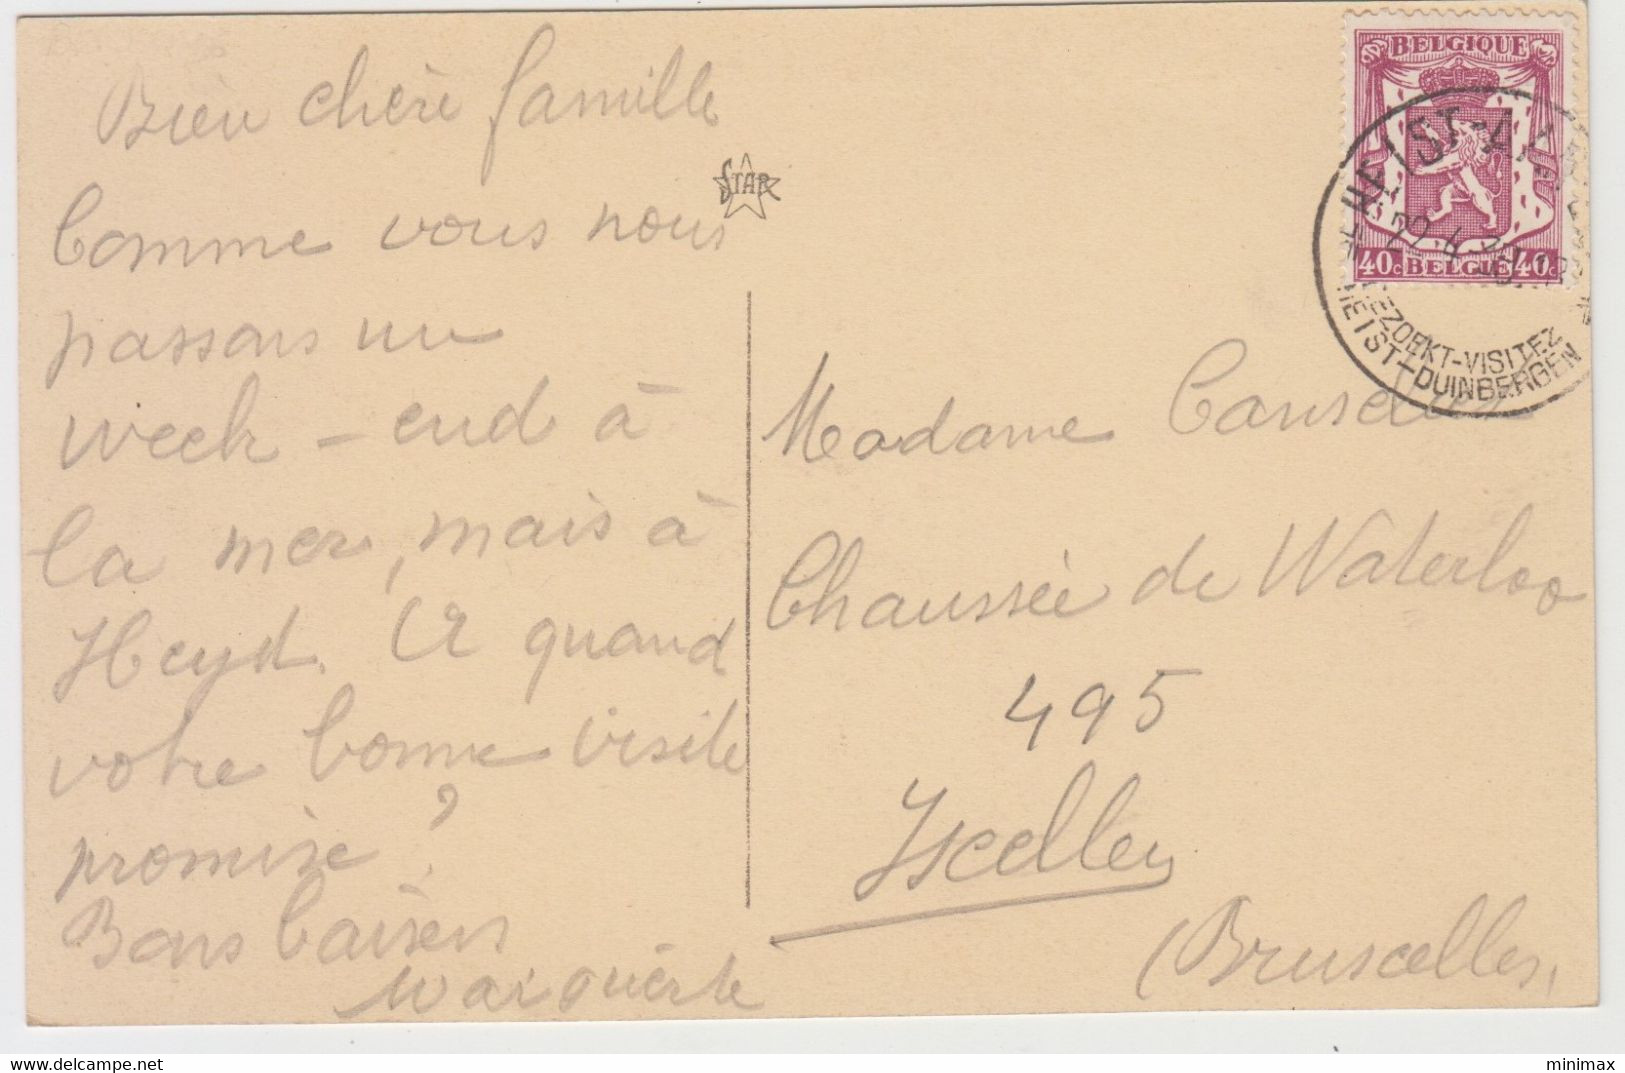 Bien chère famille
STAR
Comme vous nous
passons un
week-end à
la mer, mais à
Heyst. Et quand
votre bonne visite
promise ?
Bons baisers
Marguerite
BELGIQUE
40c BELGIE 40c
HEIST
22 4
BEZOEKT-VISITEZ
HEIST-DUINBERGEN
Madame
Chaussée de Waterloo
495
Ixelles
(Bruxelles)
delcampe.net
minimax